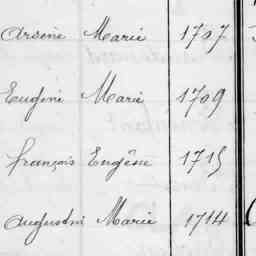 Arsène Marie 1707
Eugène Marie 1709
françois Eugène 1715
Augustine Marie 1714